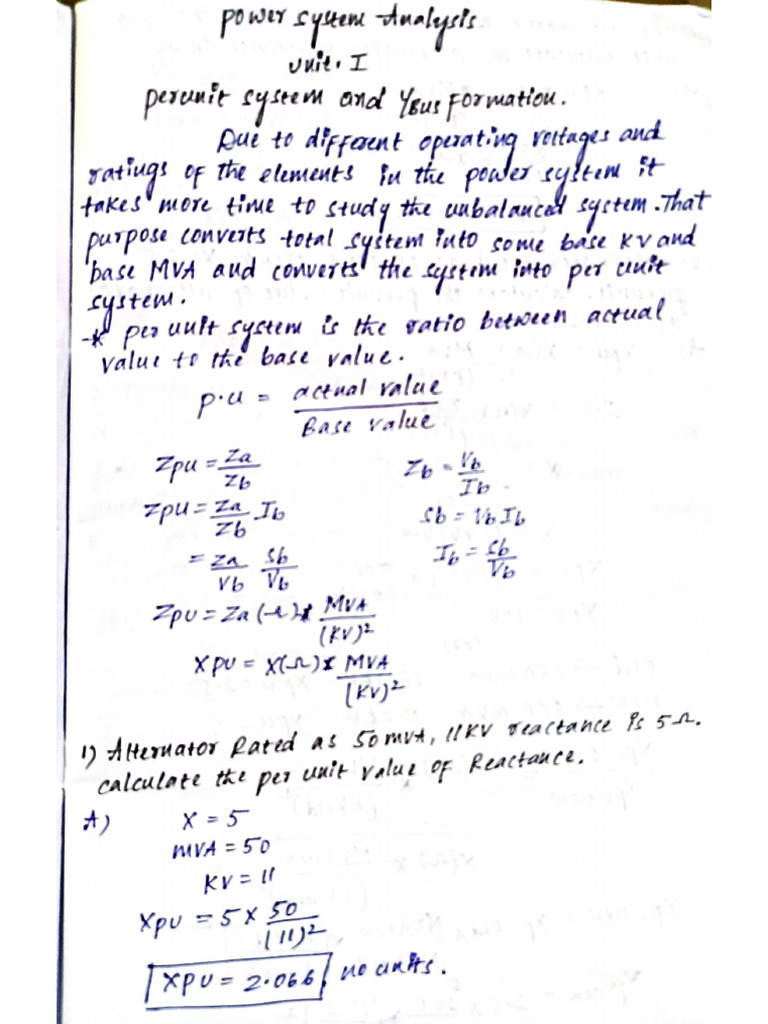 power system Analysis
unit. I
perunit system and YBUS Formation.
Due to different operating voltages and
ratings of the elements in the power system it
takes more time to study the unbalanced system. That
purpose converts total system into some base KV and
base MVA and converts the system into per unit
system.
* per unit system is the ratio between actual
value to the base value.
p.u = actual value
Base value
Zpu = Za / Zb    Zb = Vb / Ib
Zpu = Za / Zb Ib    Sb = Vb Ib
= Za / Vb Sb / Vb    Ib = Sb / Vb
Zpu = Za (Ω) * MVA / (KV)²
XPU = X(Ω) * MVA / (KV)²
1) Alternator Rated as 50 MVA, 11KV reactance is 5Ω.
calculate the per unit value of Reactance.
A) X = 5
MVA = 50
KV = 11
XPU = 5 X 50 / (11)²
XPU = 2.066 no units.